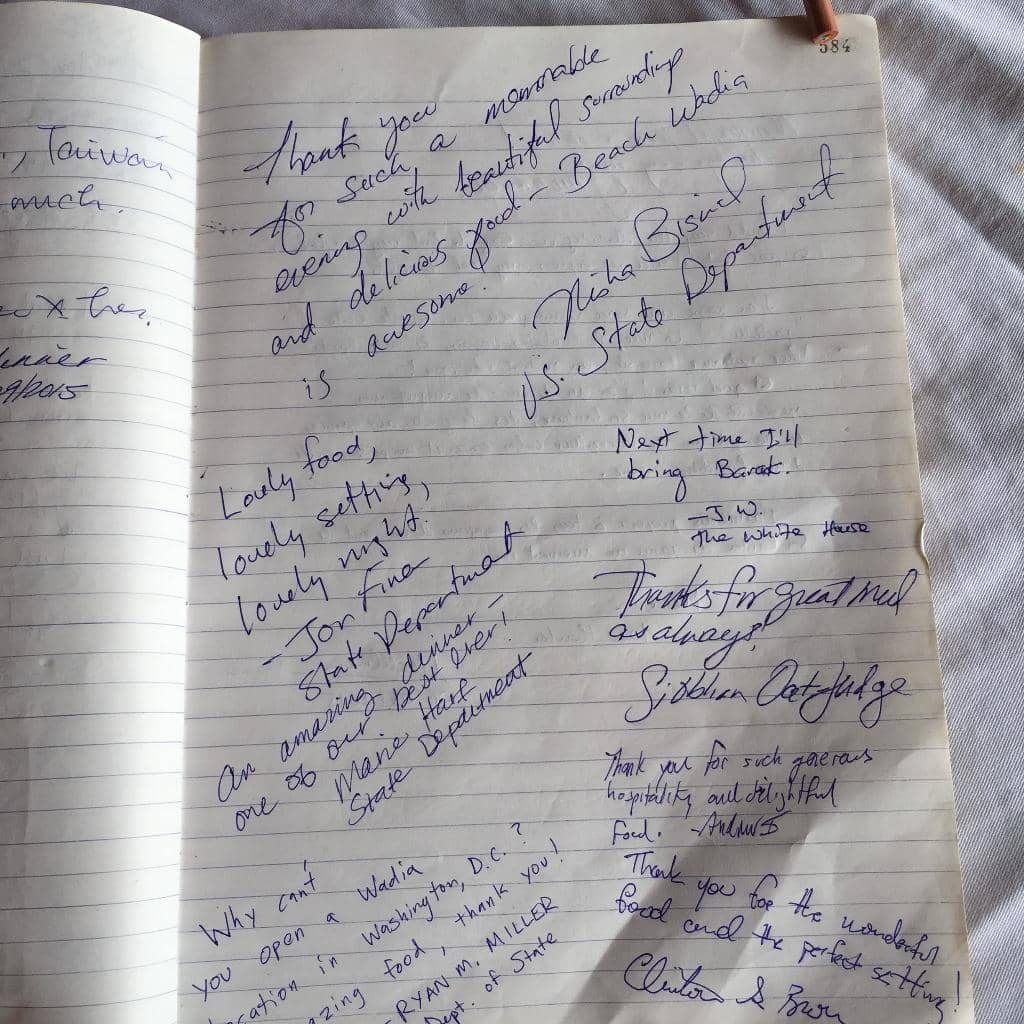 Taiwan
much.
her.
09/2015
584
Thank you
for such a memorable
evening with beautiful surroundings
and delicious food - Beach Wadia
is awesome.
Nisha Biswal
U.S. State Department
Lovely food,
lovely setting,
lovely night.
- Jon Finer
State Department
An amazing dinner -
one of our best ever!
Marie Harf
State Department
Why can't
you open a Wadia
location in Washington, D.C.?
food, thank you!
- RYAN M. MILLER
Dept. of State
Next time I'll
bring Barack.
- J.W.
The White House
Thanks for great meal
as always!
Siobhan Oat-Judge
Thank you for such generous
hospitality and delightful
food. - Andrew
Thank you for the wonderful
food and the perfect setting!
Clinton S Brown